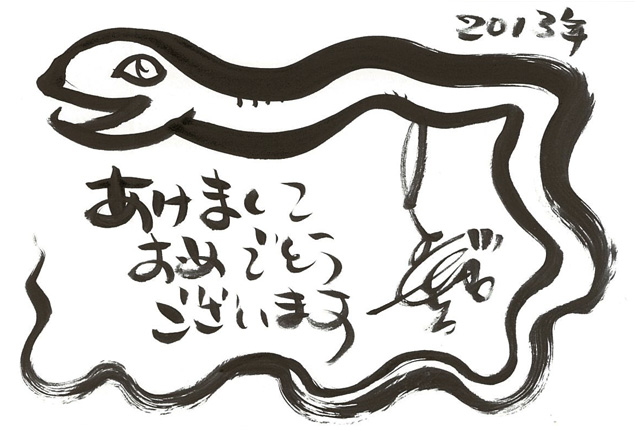 2013年
あけまして
おめでとう
ございます